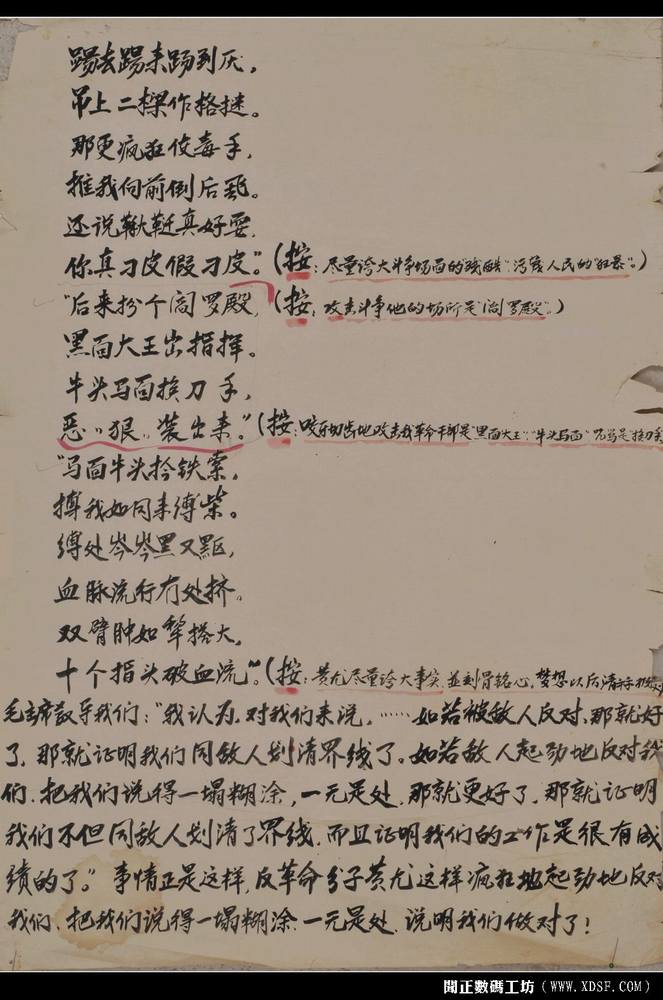 踢去踢来踢到厌，
吊上二樑作格挞。
那更疯狂使毒手，
推我向前倒后跐。
还说鞦韆真好耍，
你真刁皮假刁皮。”（按：尽量夸大斗争场面的“残酷”污蔑人民的“狂暴”。）
“后来扮个阎罗殿，（按：攻击斗争他的场所是“阎罗殿”。）
黑面大王出指挥。
牛头马面挨刀手，
恶〃狠〃装出来。”（按：咬牙切齿地攻击我革命干部是“黑面大王”“牛头马面”咒骂是“挨刀手
“马面牛头拎铁索，
搏我如同来缚柴。
缚处岑岑黑又
血脉流行冇处挤。
双臂肿如犂搭大，
十个指头破血流”。（按：黄尤尽量夸大事实，並刻骨铭心，梦想以后清
毛主席教导我们：“我认为，对我们来说，……如若被敌人反对，那就好
了，那就证明我们同敌人划清界线了。如若敌人起劲地反对我
们，把我们说得一塌糊涂，一无是处，那就更好了，那就证明
我们不但同敌人划清了界线，而且证明我们的工作是很有成
绩的了。”事情正是这样，反革命分子黄尤这样疯狂地起劲地反对
我们，把我们说得一塌糊涂，一无是处，说明我们做对了！
闻正數碼工坊（WWW.XDSF.COM）